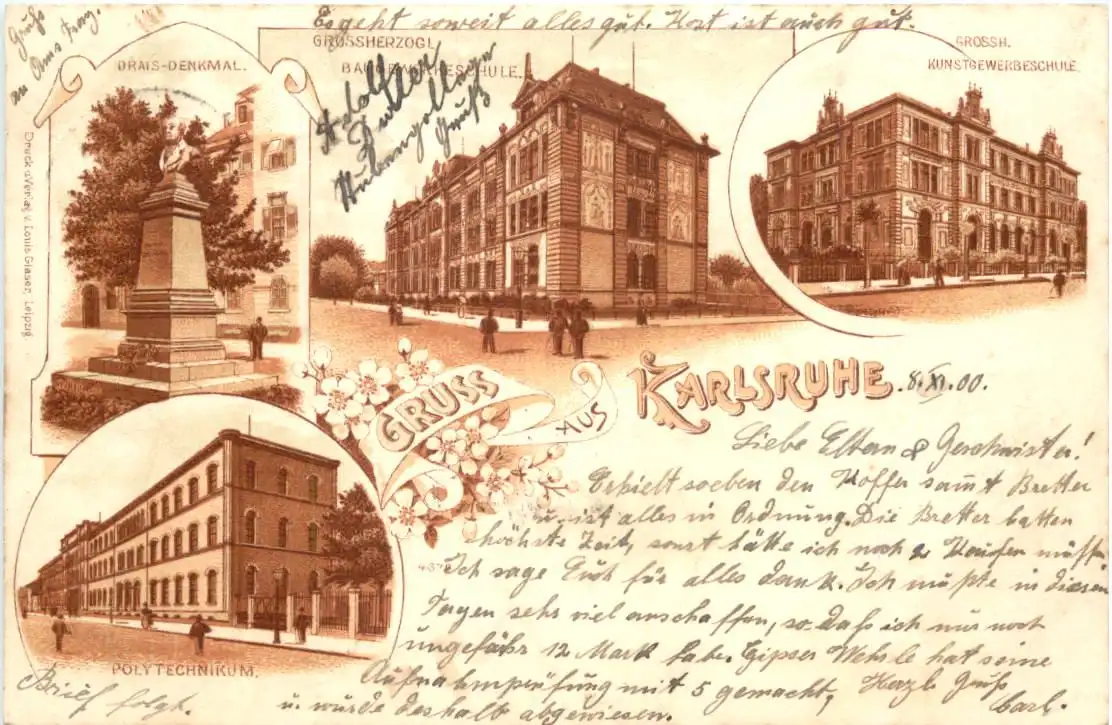 Es geht soweit alles gut. Kost ist auch gut.
Gruß
an Ams
GROSSHERZOGL.
BAUGEWERKESCHULE.
GROSSH.
KUNSTGEWERBESCHULE.
DRAIS-DENKMAL.
Adolf
Gruß
Druck u. Verlag v. Louis Glaser, Leipzig.
GRUSS
AUS
KARLSRUHE. 8. XI. 00.
Liebe Eltern & Geschwister!
Erhielt soeben den Koffer samt Bretter
u. ist alles in Ordnung. Die Bretter hatten
höchste Zeit, sonst hätte ich noch 2 kaufen müssen
Ich sage Euch für alles dank. Ich mußte in diesen
Tagen sehr viel anschaffen, so daß ich nur noch
ungefähr 12 Mark habe. Gipser Wehrle hat seine
Aufnahmprüfung mit 5 gemacht, Herzl. Gruß
u. wurde deshalb abgewiesen. Carl.
POLYTECHNIKUM.
Brief folgt.